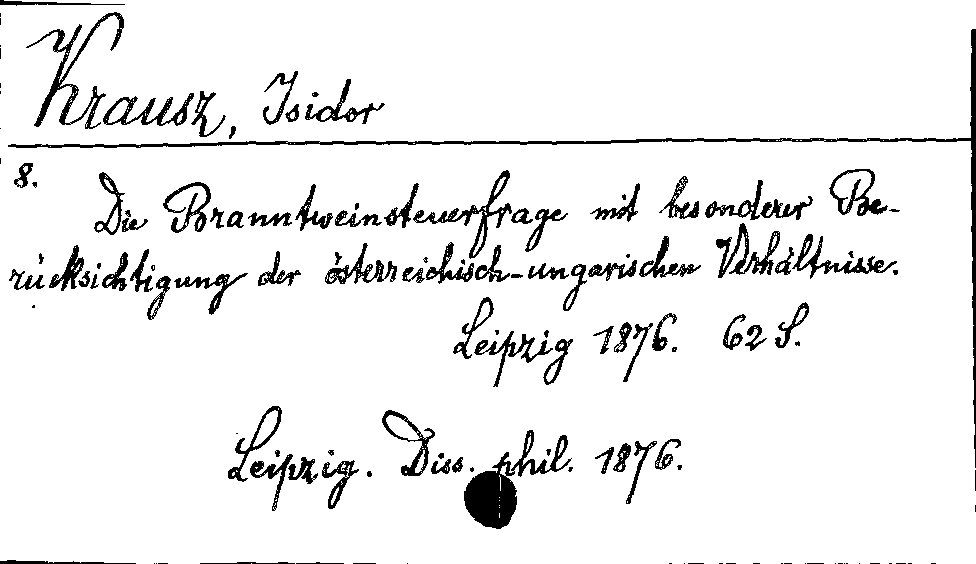 Krausz, Isidor
8.
Die Branntweinsteuerfrage mit besonderer Be-
rücksichtigung der österreichisch-ungarischen Verhältnisse.
Leipzig 1876. 62 S.
Leipzig. Diss. phil. 1876.